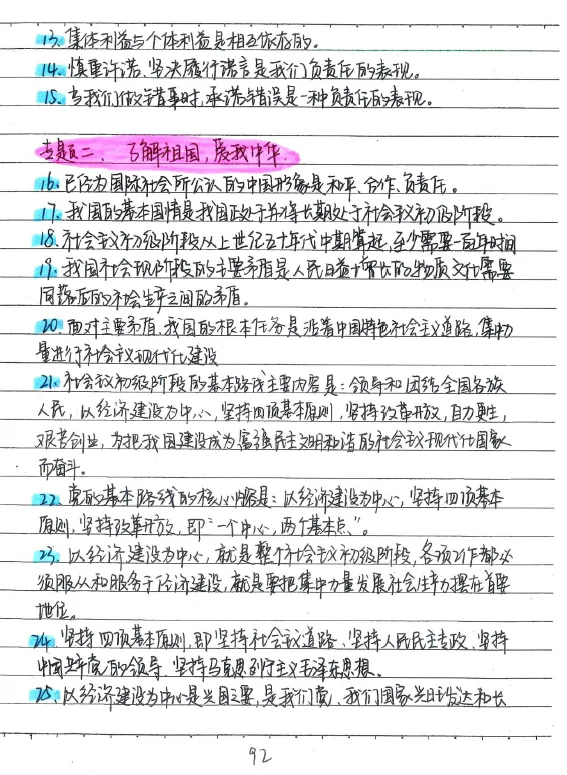 13. 集体利益与个体利益是相互依存的。
14. 慎重许诺、坚决履行诺言是我们负责任的表现。
15. 当我们做错事时,承诺错误是一种负责任的表现。
专题二、了解祖国,爱我中华.
16. 已经为国际社会所公认的中国形象是和平、合作、负责任。
17. 我国的基本国情是我国正处于并将长期处于社会主义初级阶段。
18. 社会主义初级阶段从上世纪五十年代中期算起,至少需要一百年时间
19. 我国社会现阶段的主要矛盾是人民日益增长的物质文化需要
同落后的社会生产之间的矛盾。
20. 面对主要矛盾,我国的根本任务是沿着中国特色社会主义道路,集中力
量进行社会主义现代化建设
21. 社会主义初级阶段的基本路线主要内容是:领导和团结全国各族
人民,以经济建设为中心,坚持四项基本原则,坚持改革开放,自力更生,
艰苦创业,为把我国建设成为富强民主文明和谐的社会主义现代化国家
而奋斗。
22. 党的基本路线的核心内容是:以经济建设为中心,坚持四项基本
原则,坚持改革开放,即“一个中心,两个基本点”。
23. 以经济建设为中心,就是整个社会主义初级阶段,各项工作都必
须服从和服务于经济建设,就是要把集中力量发展社会生产力摆在首要
地位。
24. 坚持四项基本原则,即坚持社会主义道路、坚持人民民主专政、坚持
中国共产党的领导、坚持马克思列宁主义毛泽东思想。
25. 以经济建设为中心是兴国之要,是我们党、我们国家兴旺发达和长
92